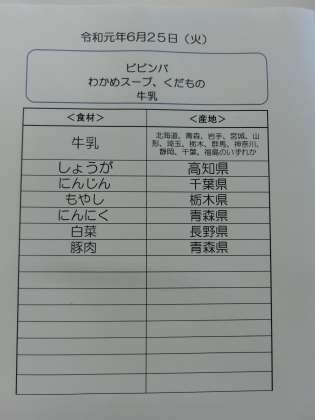 令和元年6月25日（火）
ビビンバ
わかめスープ、くだもの
牛乳
＜食材＞ ＜産地＞
牛乳 北海道、青森、岩手、宮城、山
形、埼玉、栃木、群馬、神奈川、
静岡、千葉、福島のいずれか
しょうが 高知県
にんじん 千葉県
もやし 栃木県
にんにく 青森県
白菜 長野県
豚肉 青森県